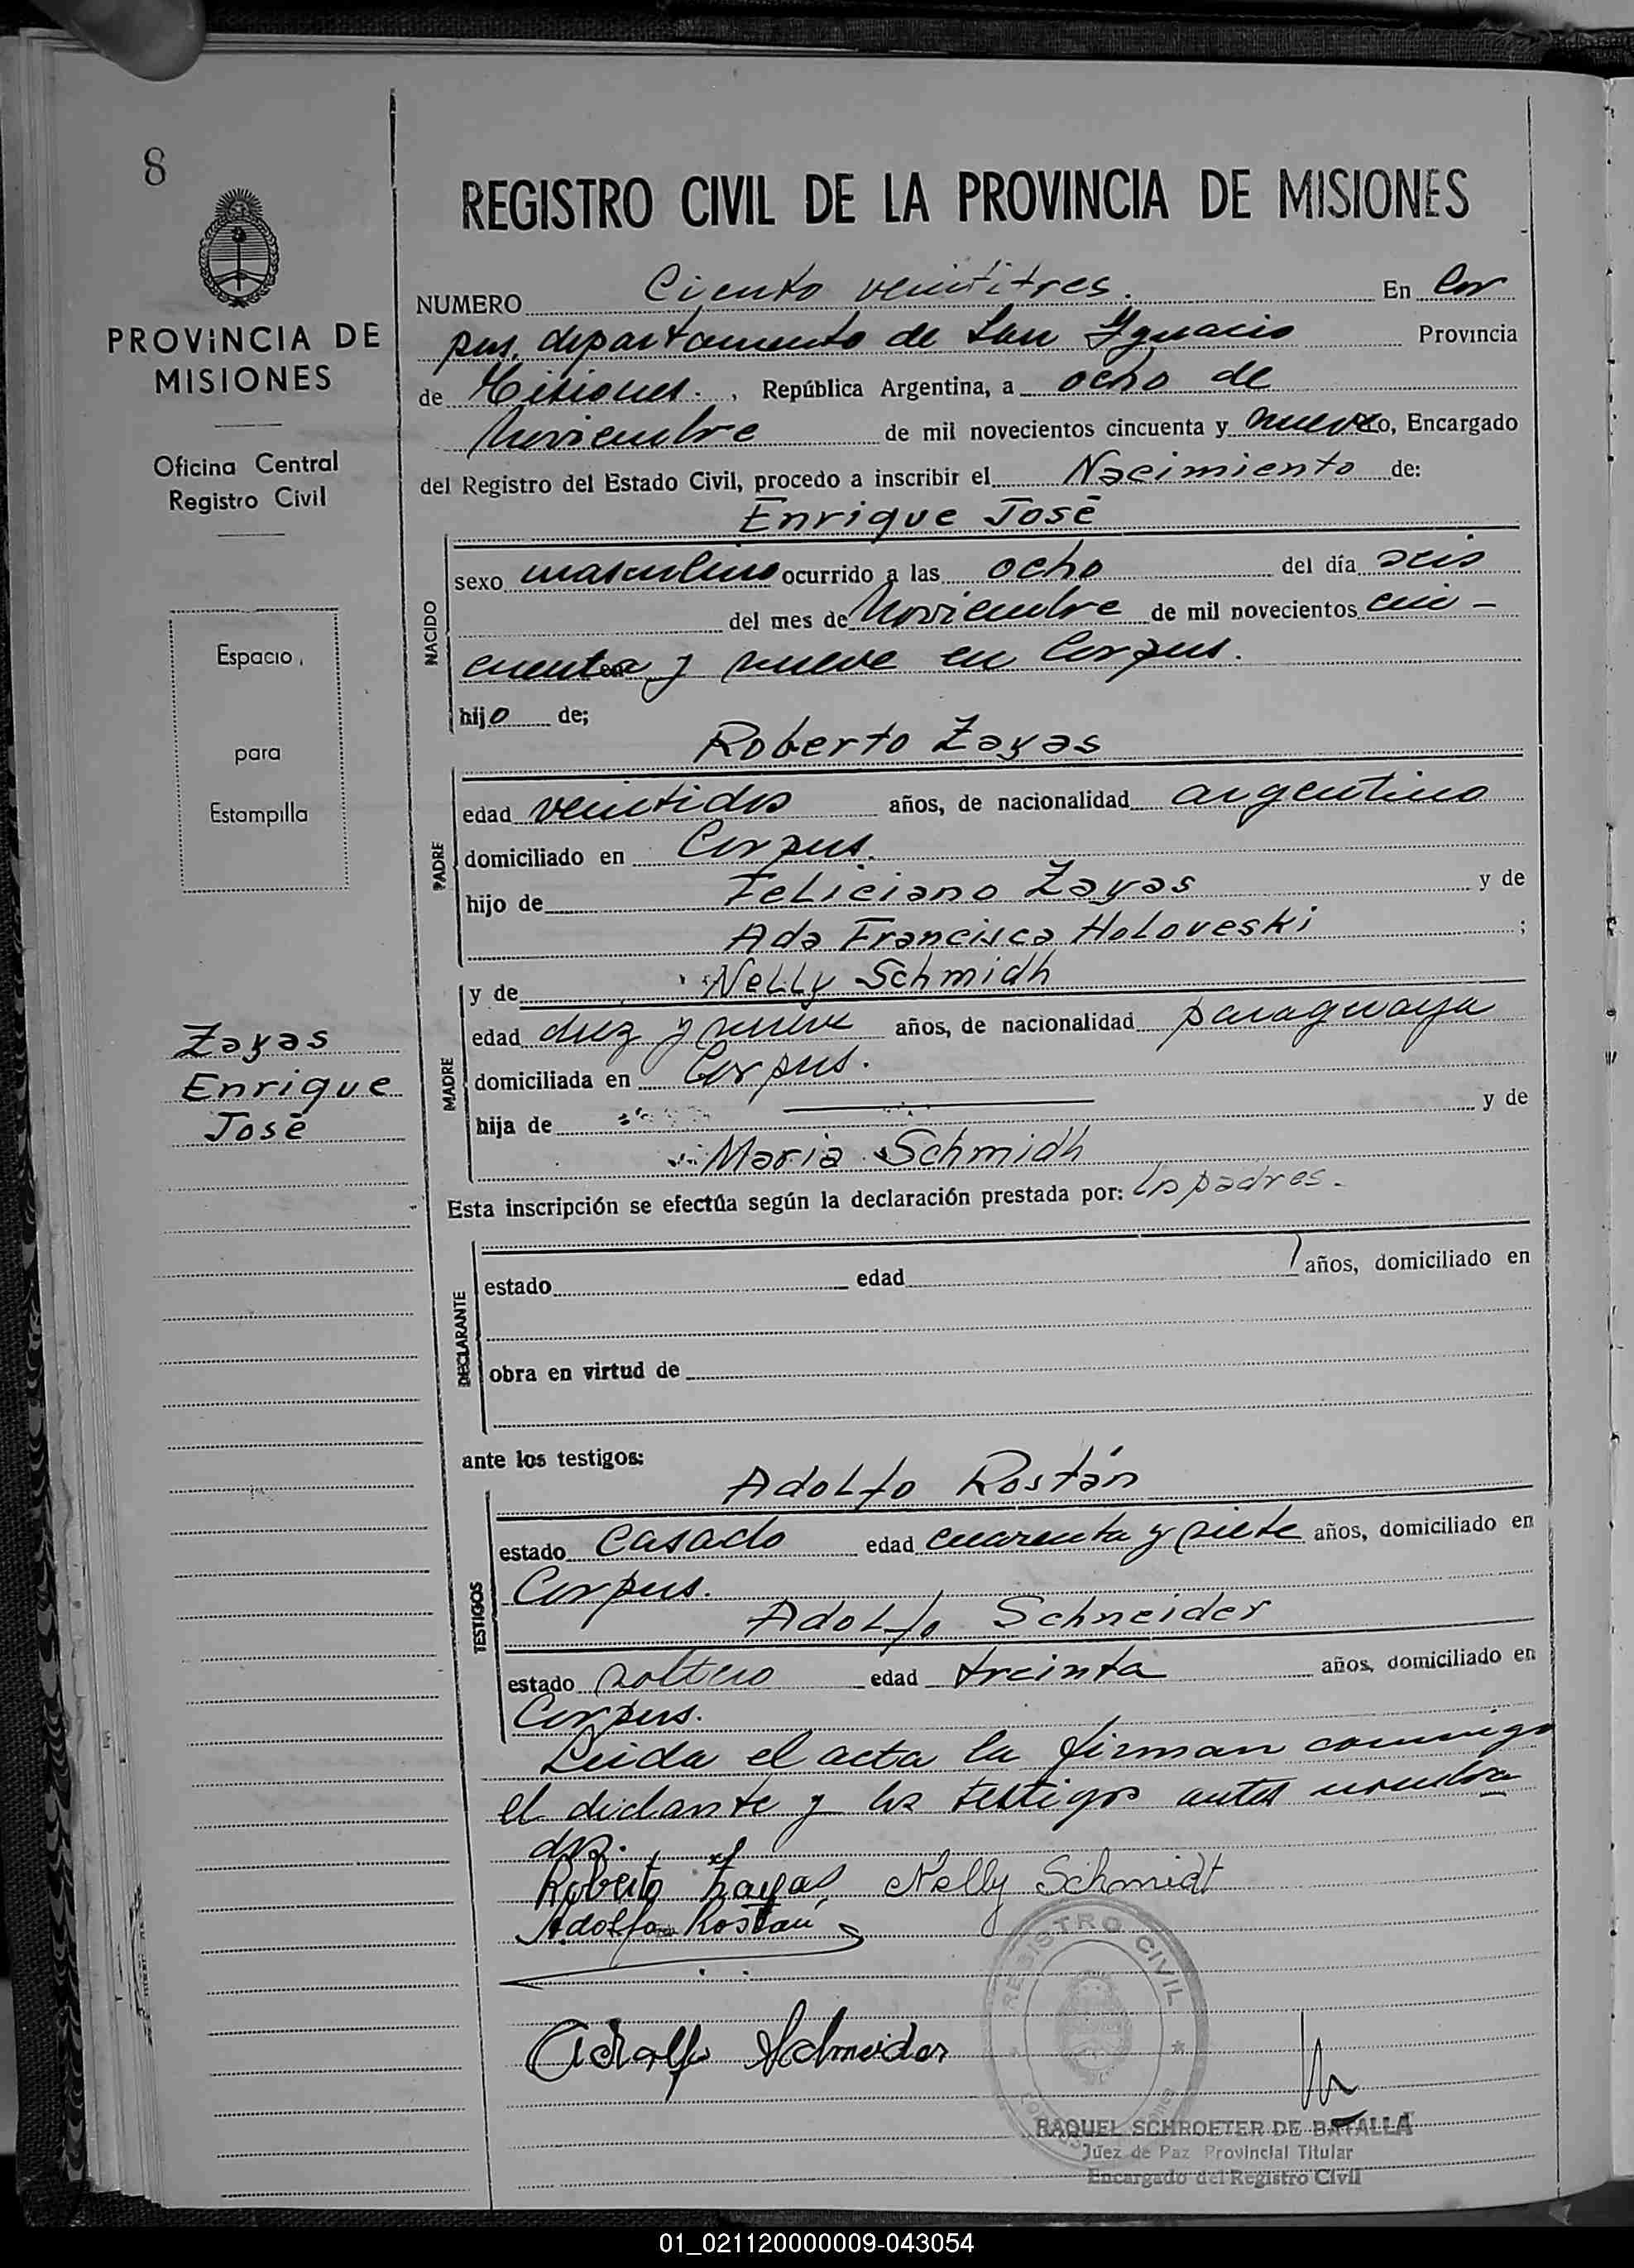 8
REGISTRO CIVIL DE LA PROVINCIA DE MISIONES
PROVINCIA DE
MISIONES
Oficina Central
Registro Civil
Espacio
para
Estampilla
Zayas
Enrique
José
NUMERO Ciento veintitres. En Cor
pus, departamento de San Ygnacio Provincia
de Misiones. , República Argentina, a ocho de
Noviembre de mil novecientos cincuenta y nueve yo, Encargado
del Registro del Estado Civil, procedo a inscribir el Nacimiento de:
Enrique José
NACIDO
sexo masculino ocurrido a las ocho del día seis
del mes de Noviembre de mil novecientos cin-
cuenta y nueve en Corpus.
hijo de;
Roberto Zayas
PADRE
edad veintidos años, de nacionalidad argentino
domiciliado en Corpus.
hijo de Feliciano Zayas y de
Ada Francisca Holoveski ;
y de Nelly Schmidh
MADRE
edad diez y nueve años, de nacionalidad paraguaya
domiciliada en Corpus.
hija de y de
Maria Schmidh
Esta inscripción se efectúa según la declaración prestada por: los padres.
DECLARANTE
estado edad años, domiciliado en
obra en virtud de
ante los testigos:
Adolfo Rostán
TESTIGOS
estado casado edad cuarenta y siete años, domiciliado en
Corpus.
Adolfo Schneider
estado soltero edad treinta años, domiciliado en
Corpus.
Leida el acta la firman conmigo
el diclante y los testigos antes nombra
dos.
Roberto Zayas Nelly Schmidt
Adolfo Rostan
Adolfo Schneider
REGISTRO CIVIL
RAQUEL SCHROETER DE BATALLA
Juez de Paz Provincial Titular
Encargado del Registro Civil
01_021120000009-043054